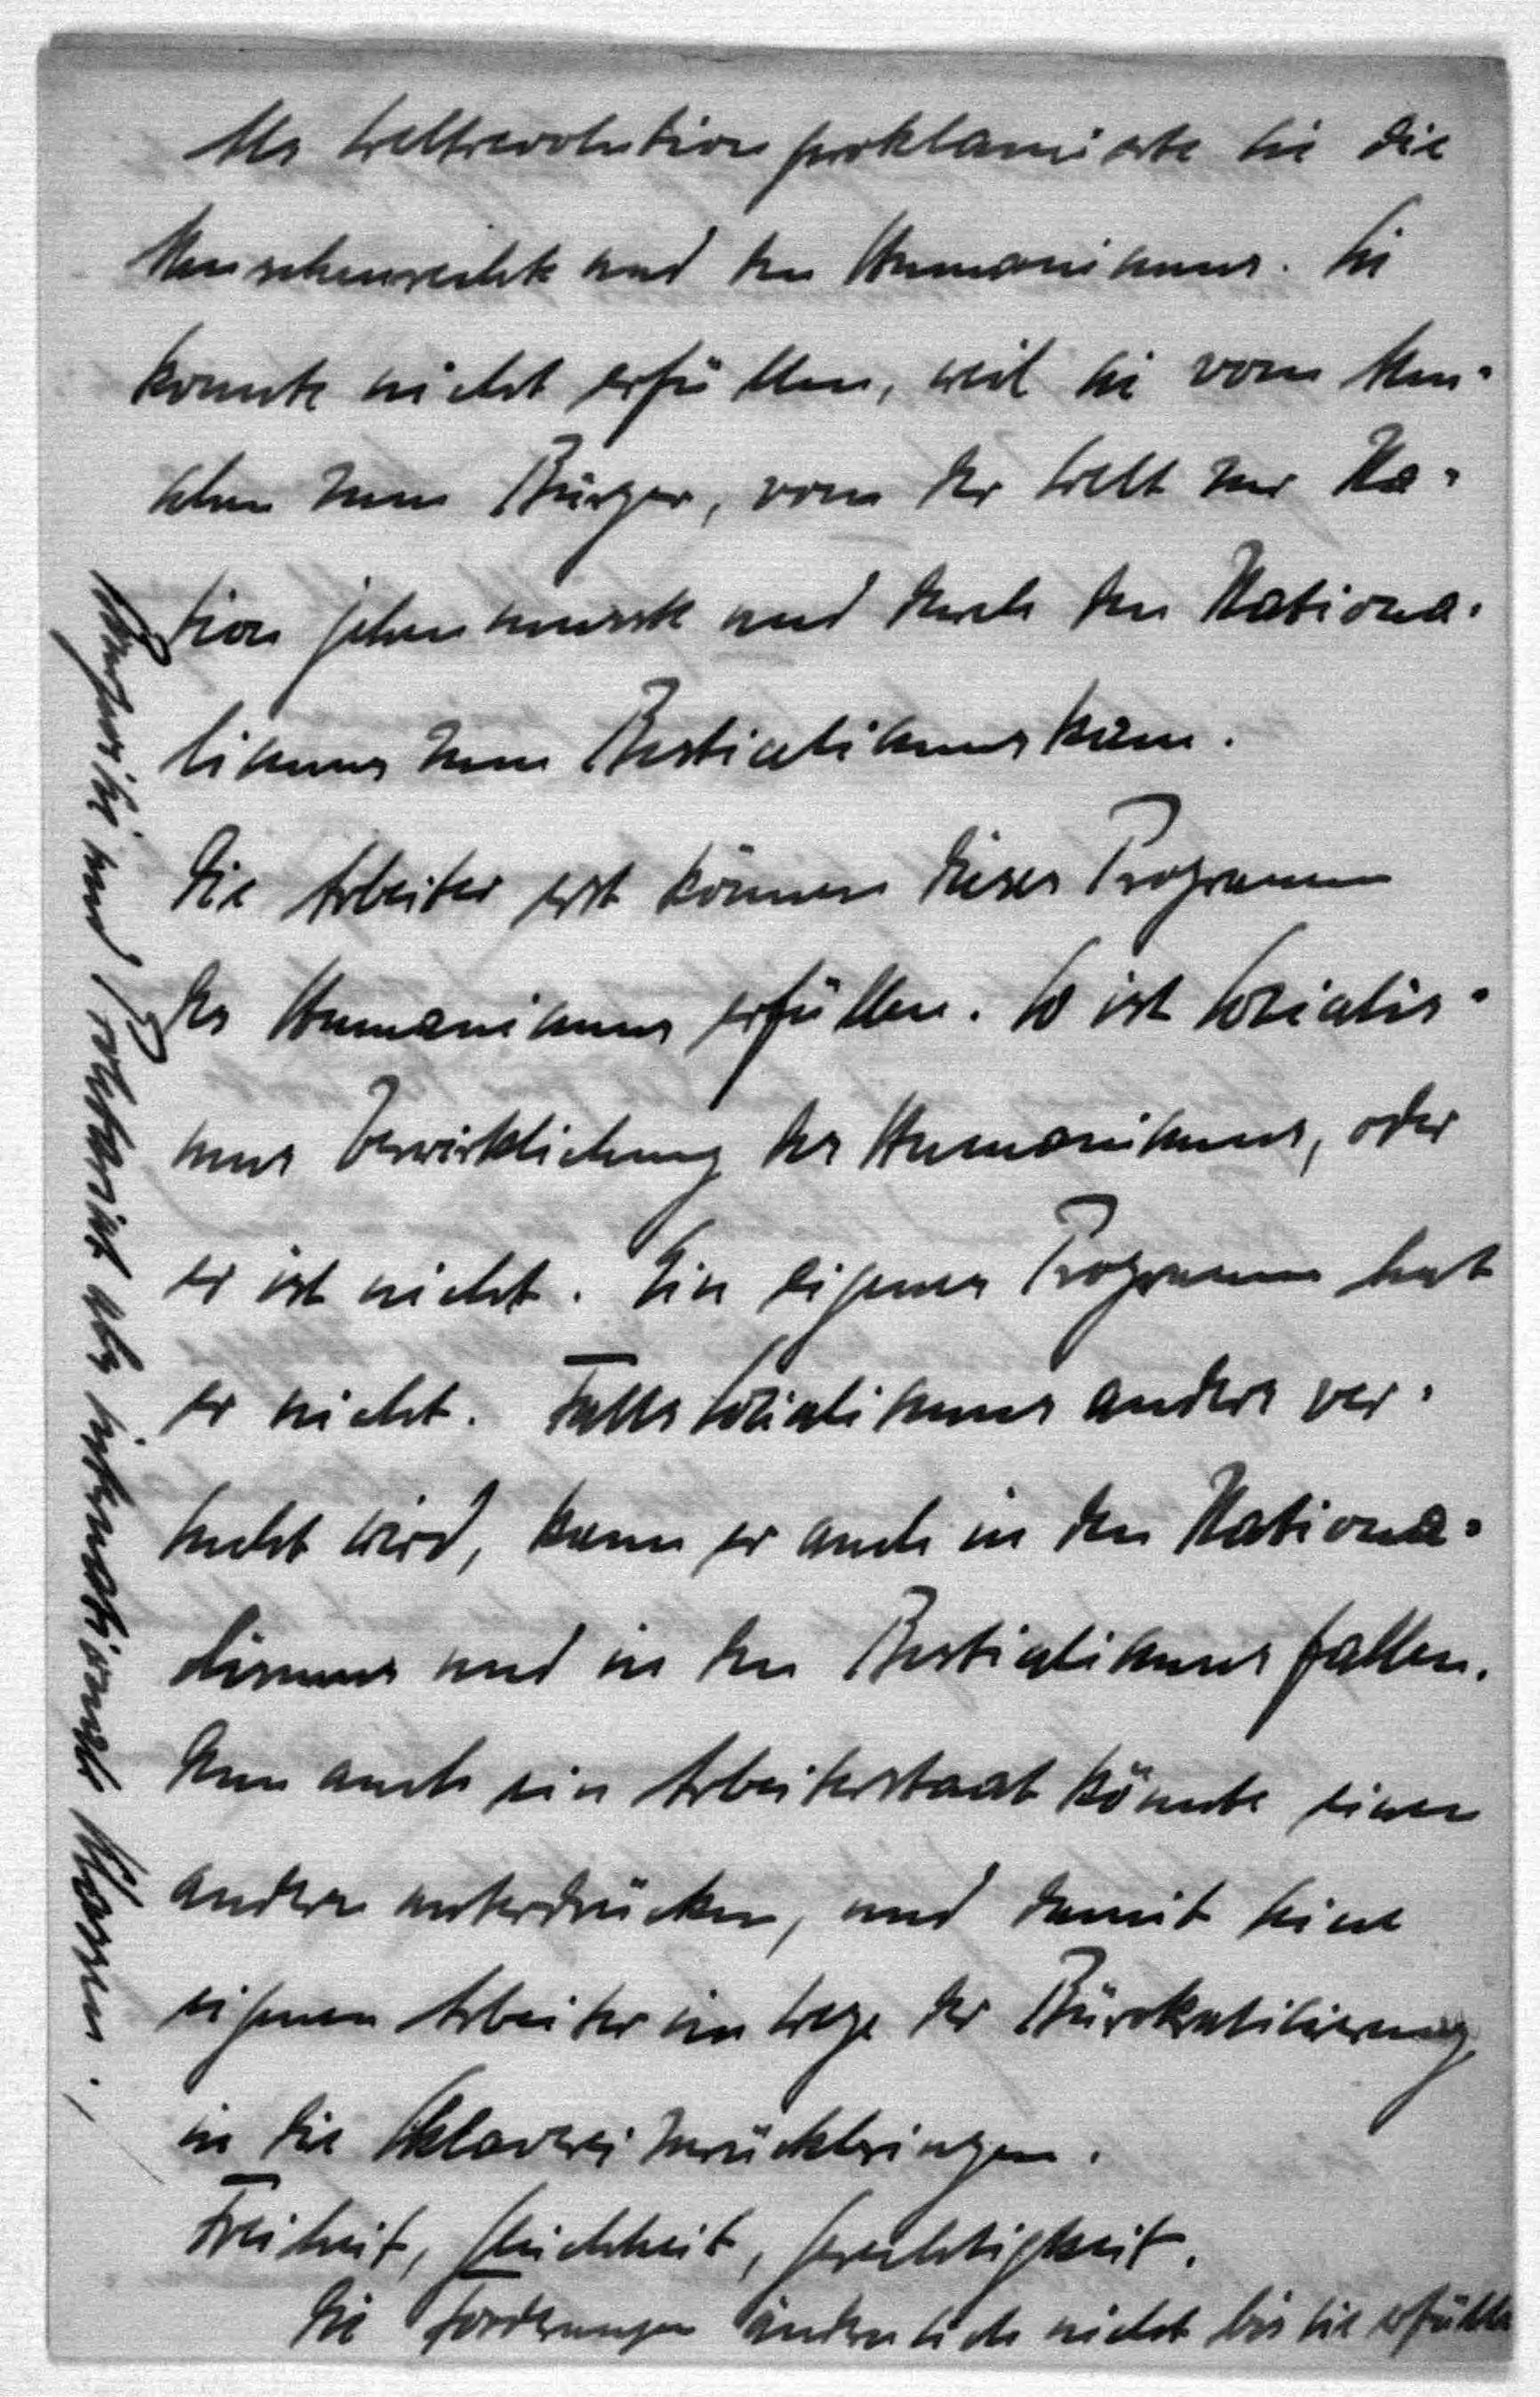 Als Weltrevolution proklamierte sie die
Menschenrechte und den Humanismus. Sie
konnte nicht erfüllen, weil sie vom Men-
schen zum Bürger, von der Welt zur Na-
tion gehen musste und durch den Nationa-
lismus zum Bestialismus kam.
Die Arbeiter erst können dieses Programm
des Humanismus erfüllen. So ist Sozialis-
mus Verwirklichung des Humanismus, oder
er ist nicht. Ein eigenes Programm hat
er nicht. Falls Sozialismus anders ver-
sucht wird, kann er auch in den Nationa-
lismus und in den Bestialismus fallen.
Denn auch ein Arbeiterstaat könnte einen
andern unterdrücken, und damit seine
eigenen Arbeiter im Wege der Bürokratisierung
in die Sklaverei zurückbringen.
Freiheit, Gleichheit, Gerechtigkeit.
Die Forderungen ändern sich nicht bis sie erfüllt
Bourgeoisie und Proletariat als internationale Klassen.